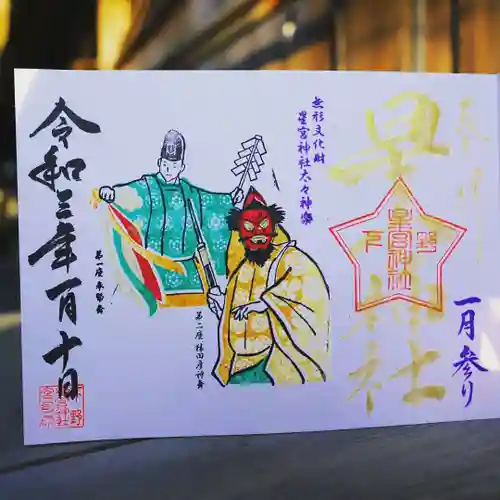 奉拝
星宮神社
下野
星宮神社
一月参り
無形文化財
星宮神社太々神楽
第二座 猿田彦神舞
第一座 奉幣舞
令和三年一月十日